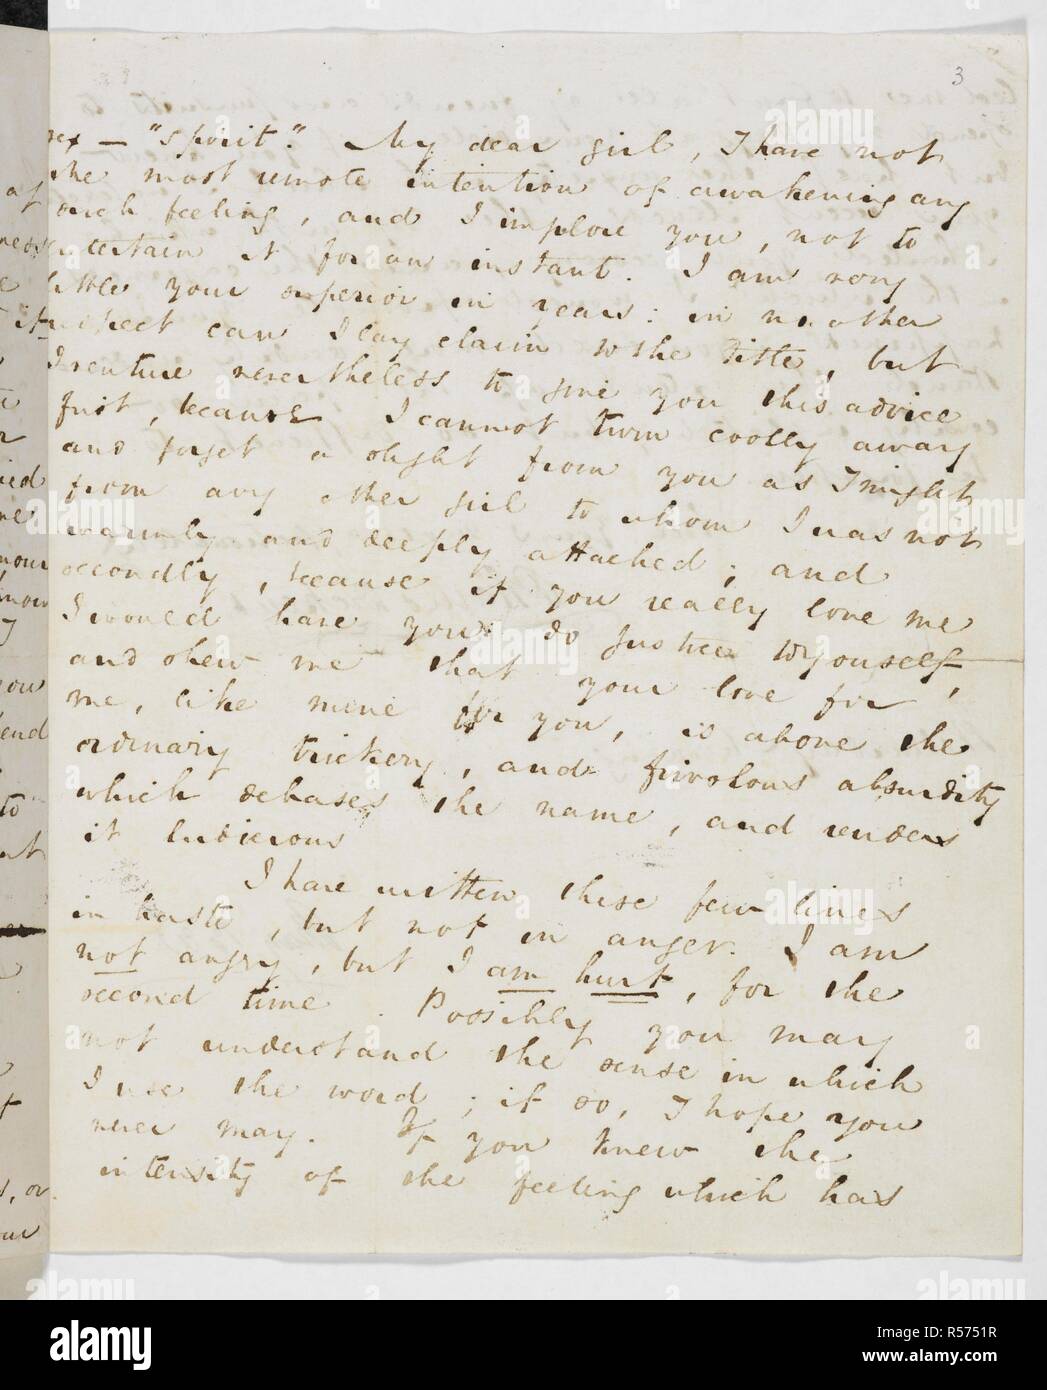 3
sex — "spirit." My dear girl, I have not
the most remote intention of awakening any
such feeling, and I implore you, not to
entertain it for an instant. I am very
little your superior in years: in no other
respect can I lay claim to the title, but
I venture nevertheless to give you this advice
first, because I cannot turn coolly away
and forget a slight from you as I might
from any other girl to whom I was not
warmly and deeply attached; and
secondly, because if you really love me
I would have you do justice to yourself,
and shew me that your love for
me, like mine for you, is above the
ordinary trickery, and frivolous absurdity
which debases the name, and renders
it ludicrous
I have written these few lines
in haste, but not in anger. I am
not angry, but I am hurt, for the
second time. Possibly you may
not understand the sense in which
I use the word; if so, I hope you
never may. If you knew the
intensity of the feeling which has
alamy
Image ID: R5751R
www.alamy.com